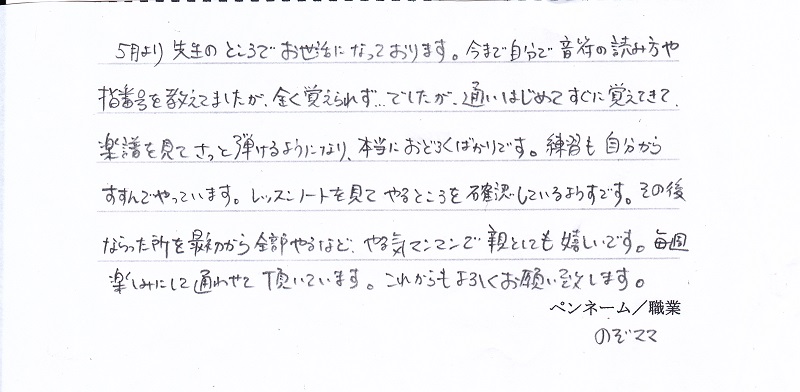 5月より先生のところでお世話になっております。今まで自分で音符の読み方や
指番号を教えてましたが、全く覚えられず…でしたが、通いはじめてすぐに覚えてきて、
楽譜を見てさっと弾けるようになり、本当におどろくばかりです。練習も自分から
すすんでやっています。レッスンノートを見てやるところを確認しているようすです。その後
ならった所を最初から全部やるなど、やる気マンマンで親としても嬉しいです。毎週
楽しみにして通わせて頂いています。これからもよろしくお願い致します。
ペンネーム／職業
のぞママ